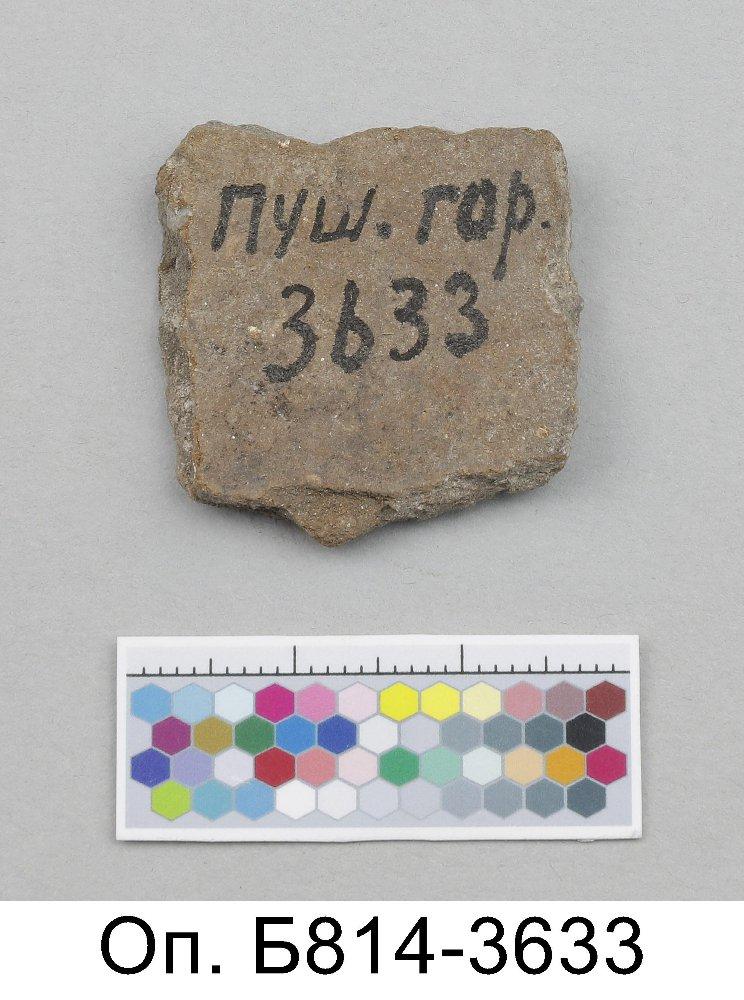 Пуш. гор.
3633
Оп. Б814-3633